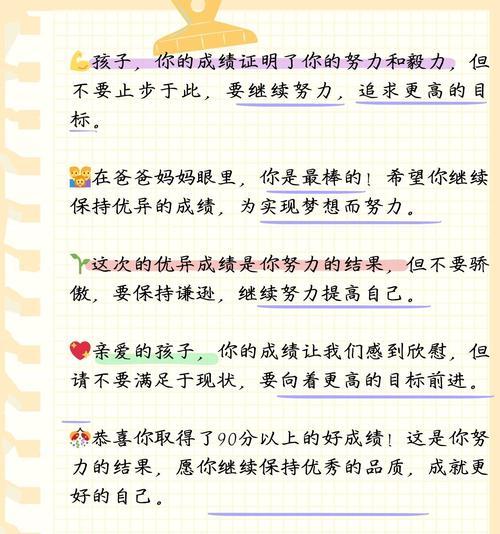 💪孩子，你的成绩证明了你的努力和毅力，但
不要止步于此，要继续努力，追求更高的目
标。
👨‍👩‍👧在爸爸妈妈眼里，你是最棒的！希望你继续
保持优异的成绩，为实现梦想而努力。
🌱这次的优异成绩是你努力的结果，但不要骄
傲，要保持谦逊，继续努力提高自己。
💖亲爱的孩子，你的成绩让我们感到欣慰，但
请不要满足于现状，要向着更高的目标前进。
🎊恭喜你取得了90分以上的好成绩！这是你努
力的结果，愿你继续保持优秀的品质，成就更
好的自己。